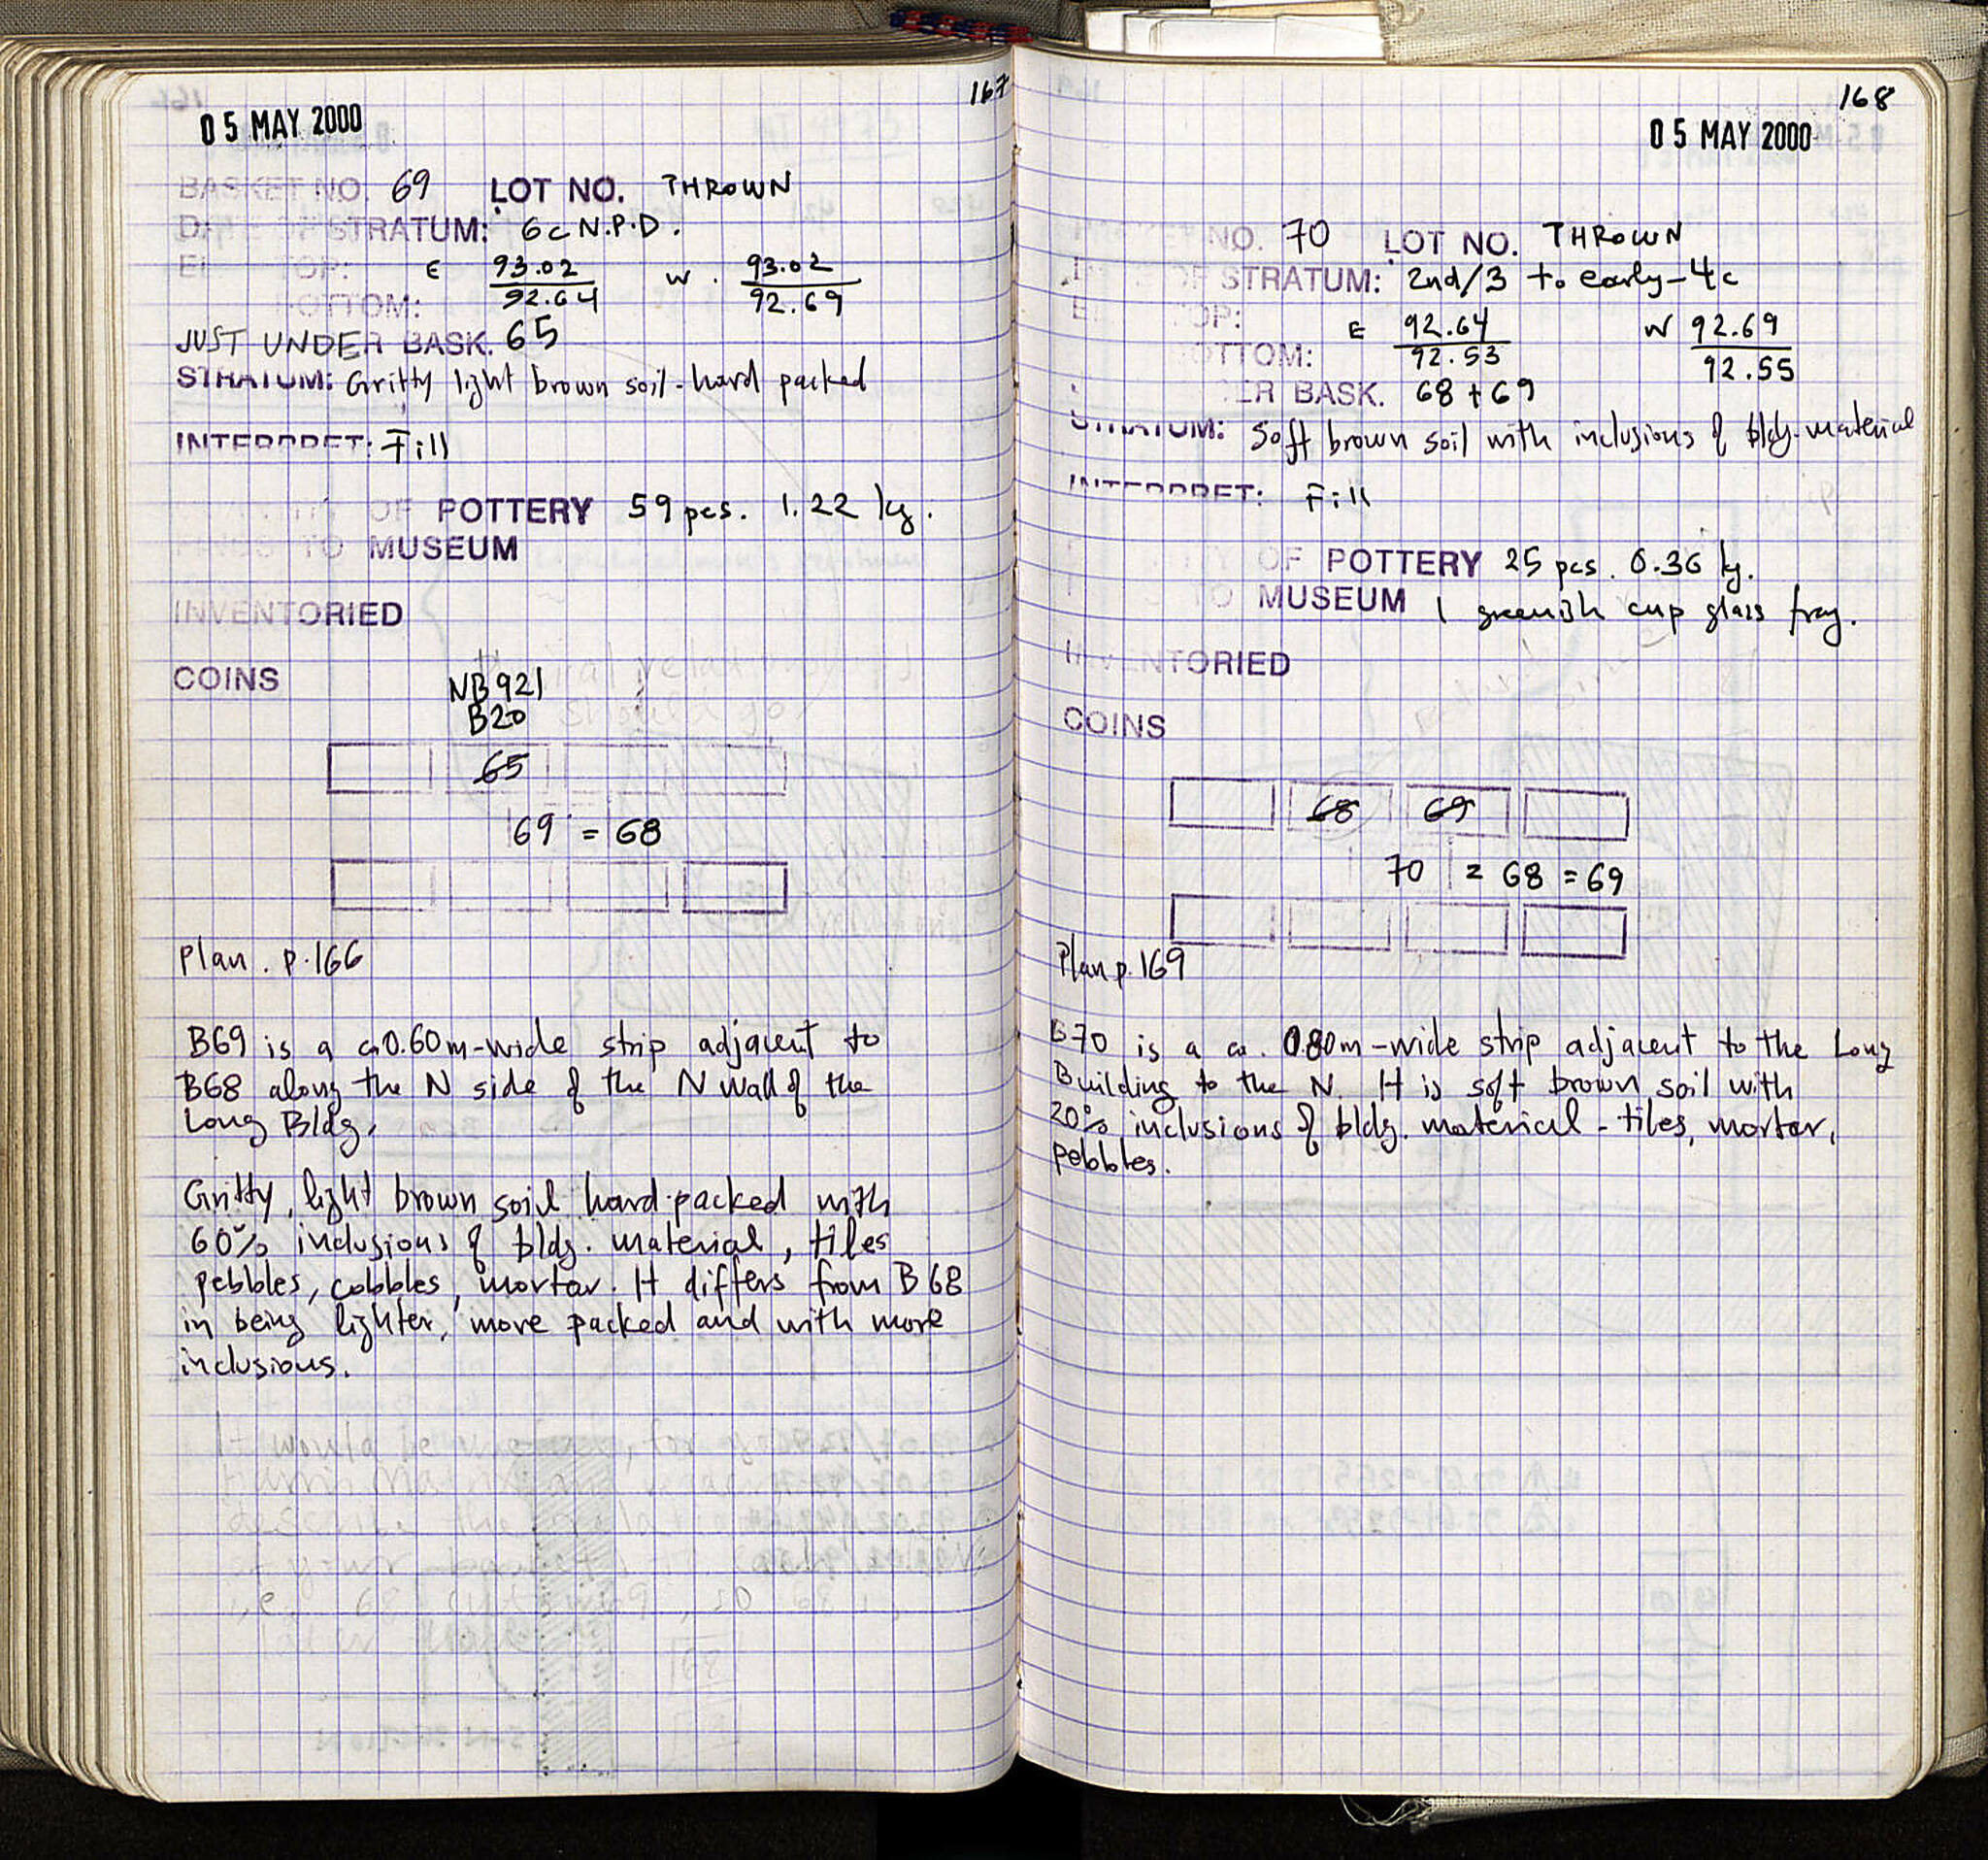 167
05 MAY 2000
BASKET NO. 69 LOT NO. THROWN
DATE OF STRATUM: 6c N.P.D.
EL. TOP: E 93.02 W. 93.02
BOTTOM: 92.64 92.69
JUST UNDER BASK. 65
STRATUM: Gritty light brown soil - hard packed
INTERPRET: Fill
OF POTTERY 59 pcs. 1.22 kg.
FINDS TO MUSEUM
INVENTORIED
COINS
NB921
B20
65
69 = 68
Plan. p.166
B69 is a ca 0.60m-wide strip adjacent to
B68 along the N side of the N wall of the
Long Bldg.
Gritty, light brown soil hard packed with
60% inclusions of bldg. material, tiles
pebbles, cobbles, mortar. It differs from B68
in being lighter, more packed and with more
inclusions.
168
05 MAY 2000
NO. 70 LOT NO. THROWN
OF STRATUM: 2nd/3 to early-4c
TOP: E 92.64 W 92.69
BOTTOM: 92.53 92.55
ER BASK. 68 + 69
STRATUM: Soft brown soil with inclusions of bldg. material
INTERPRET: Fill
OF POTTERY 25 pcs. 0.36 kg.
TO MUSEUM 1 greenish cup glass frag.
INVENTORIED
COINS
68 69
70 = 68 = 69
Plan p.169
B70 is a ca. 0.80m-wide strip adjacent to the Long
Building to the N. It is soft brown soil with
20% inclusions of bldg. material - tiles, mortar,
pebbles.